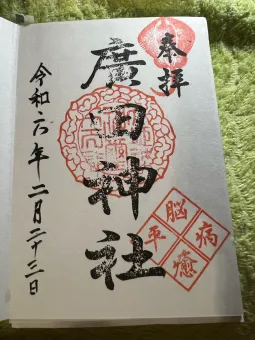 奉拝
廣田神社
令和六年二月二十三日
脳
病
平
癒